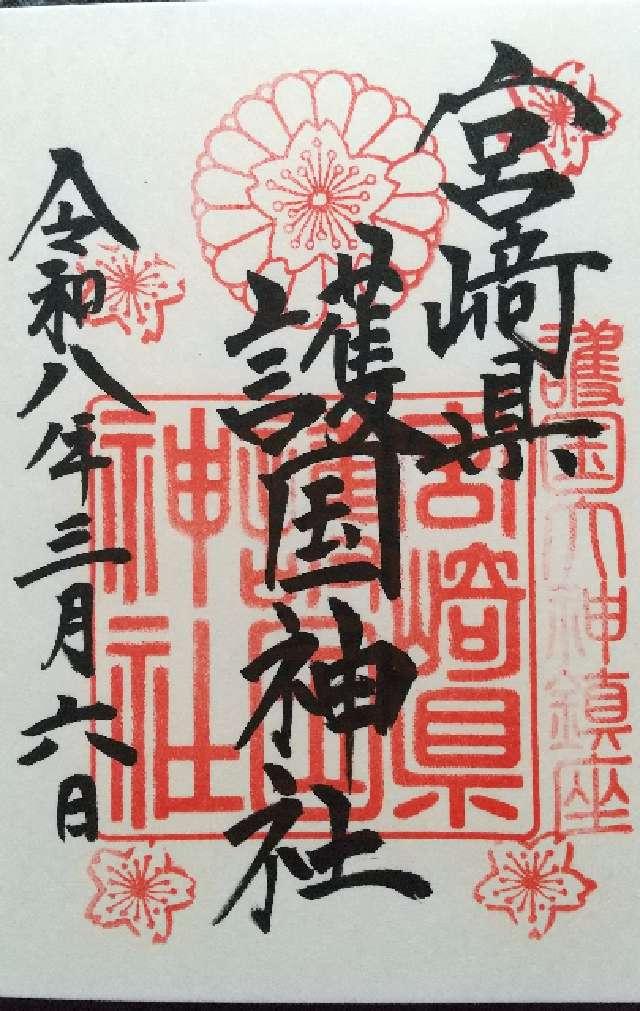 護国大神鎮座
宮﨑県
護国神社
宮﨑県
護国
神社
令和八年三月六日